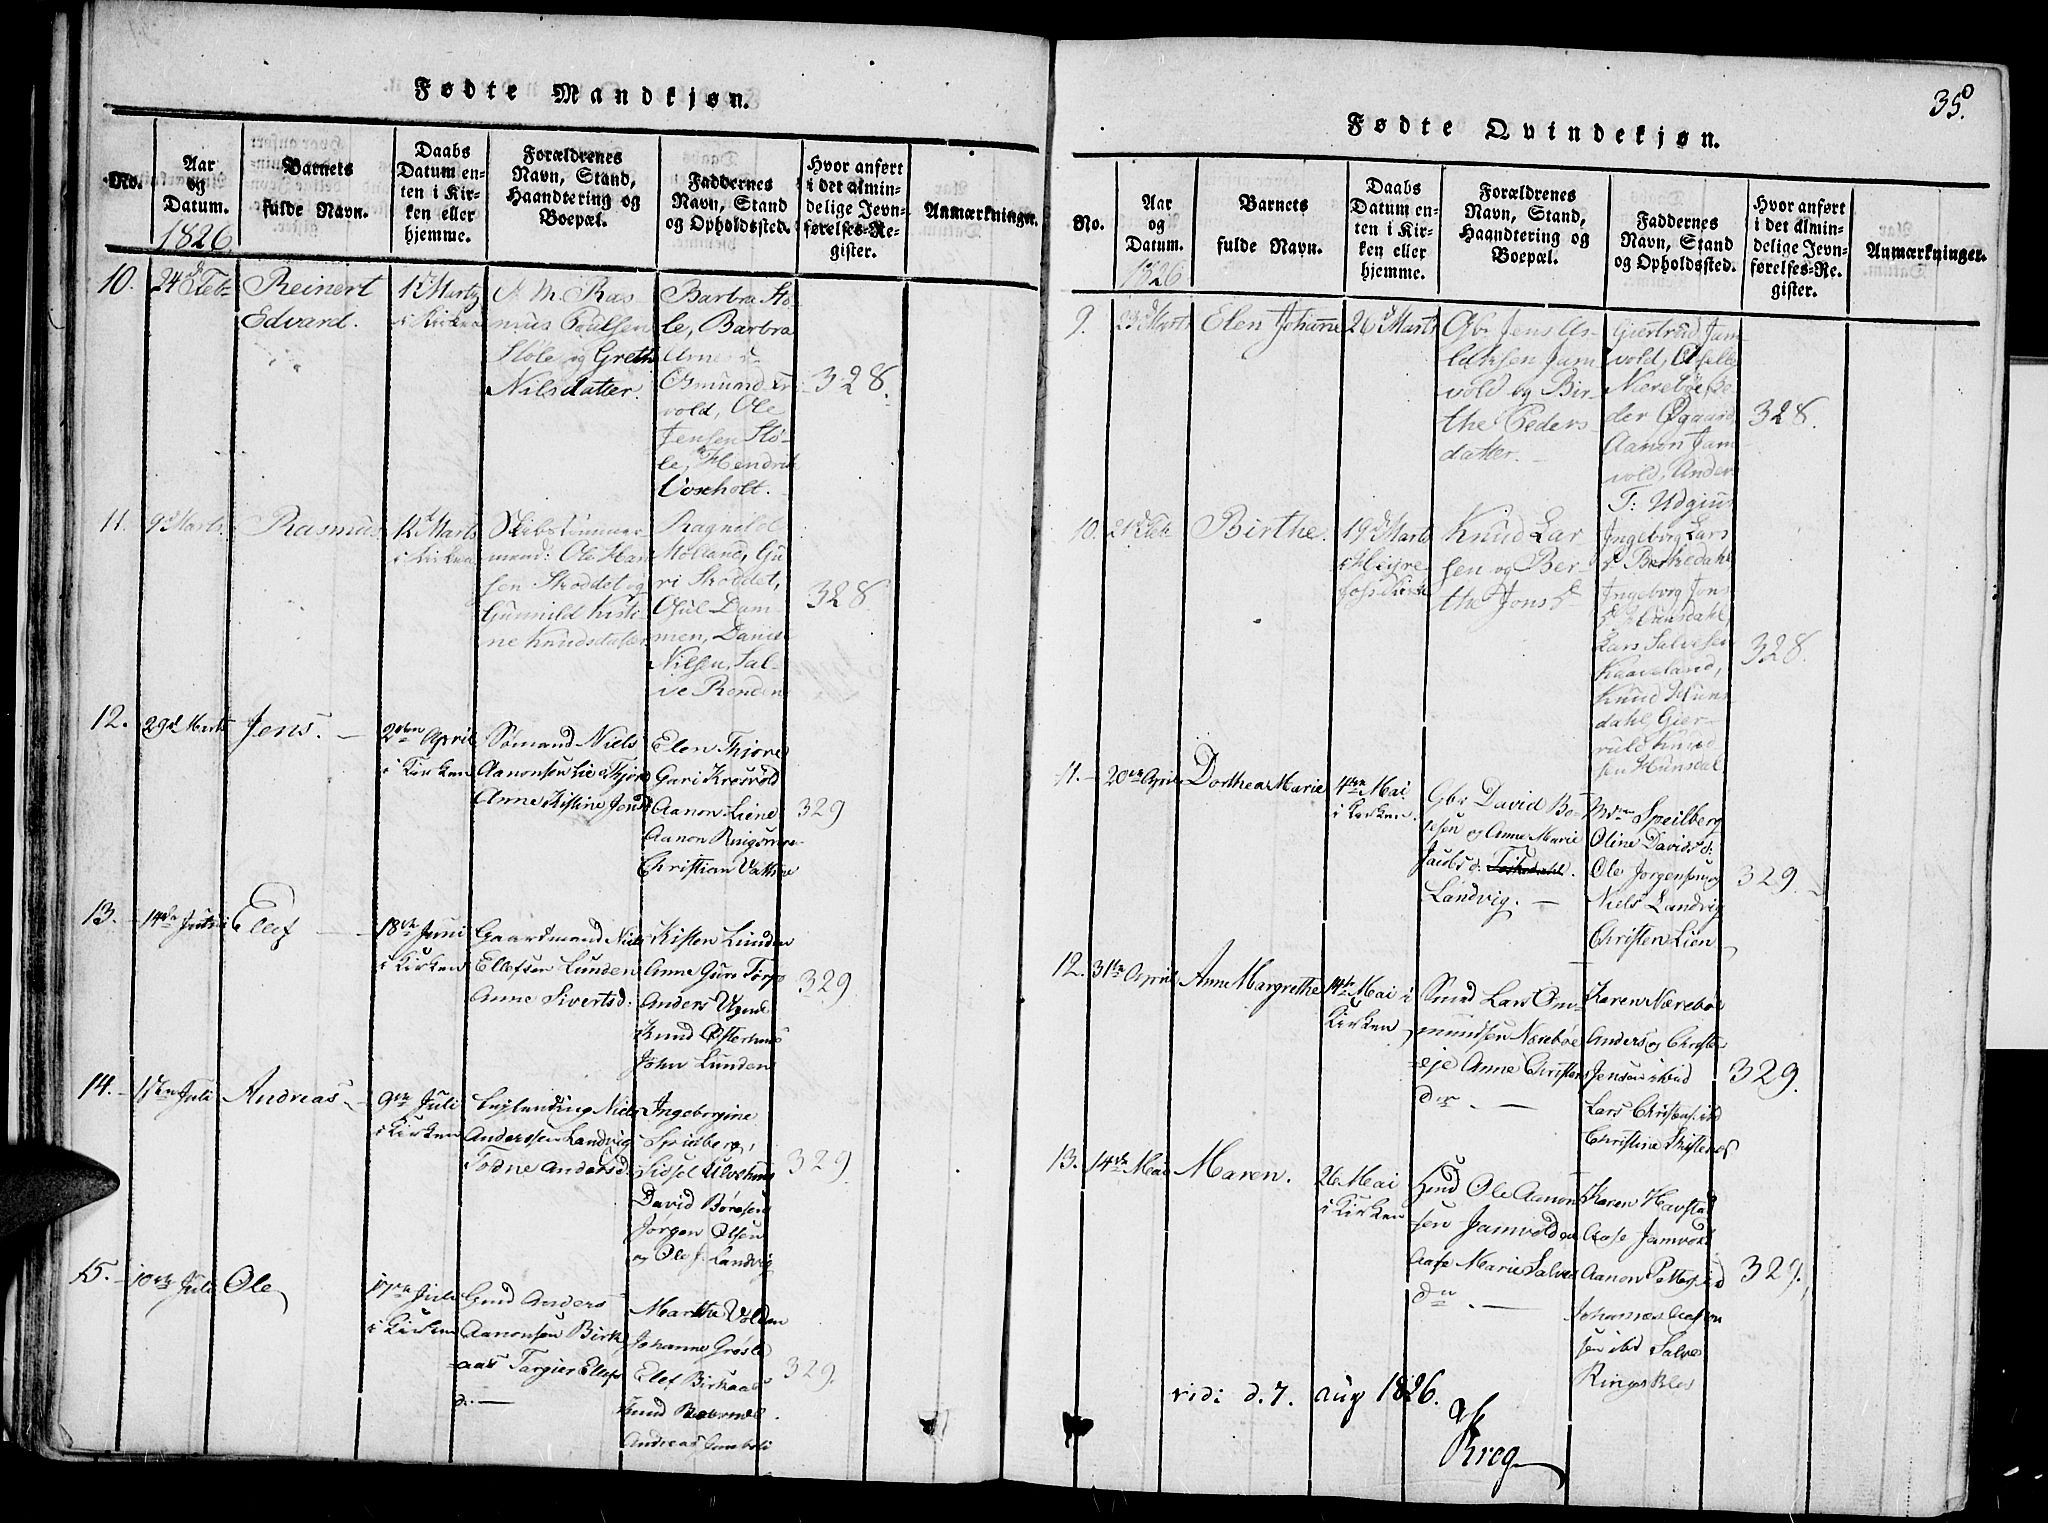 Fødte Mandkjøn.
No.
Aar
og
Datum.
1826
Barnets
fulde Navn.
Daabs
Datum en-
ten i Kir-
ken eller
hjemme.
Forældrenes
Navn, Stand,
Haandtering og
Boepæl.
Faddernes
Navn, Stand
og Opholdssted.
Hvor anført
i det almin-
delige Jevn-
førelses-Re-
gister.
Anmærkninger.
10.
24d Feb
Reinert
Edvard.
12 Marts
i Kirken
Ras
mus Poulsen
Støle og Grethe
Nilsdatter.
Barbra Stø-
le, Barbra
Osmund
vold, Ole
Jensen Stø-
le, Hendrik
Voscholt.
328.
11.
9d Marts.
Rasmus
12d Marts
i Kirken
Skibstømmer
mand: Ole Han
sen Skoddet og
Gunnild Kisti
ne Knudsdatter
Ragnild
Møland, Gu
ri Skoddet,
Oluf Dam
men, Daniel
Nilsen, Sal-
ve Renden
328
12.
29d Marts
Jens.
2den April
i Kirken
Sømand Niels
Aanonsen Lie
Anne Kistine Jensd
Elen Thjore
Aanon Liene
Aanon
Christian
329
13.
14de Juni
Elef
18de Juni
i Kirken
Gaardmand Niels
Ellefsen Lunden
Anne Sivertsd.
Kisten Lunden
Anne Guro Torp
Anders
Knud Østerhuus
John Lunden
329
14.
Juli
Andreas
9de Juli
i Kirken
Niels
Anderssen Landvig
Andersd.
Ingeborgine
Speilberg,
Sidsel Ulvehuus
David Børesen
Jørgen Olsen
og Ole J. Landvig
329
15.
10de Juli
Ole
17de Juli
i Kirken
Anders
Aanonsen Birk
aas Targier Ellefs
d.
Marthe Volden
Johanne
Elef Birkaas
Knud
Andreas
329.
35.
Fødte Qvindekjøn.
No.
Aar
og
Datum.
1826
Barnets
fulde Navn.
Daabs
Datum en-
ten i Kir-
ken eller
hjemme.
Forældrenes
Navn, Stand,
Haandtering og
Boepæl.
Faddernes
Navn, Stand
og Opholdssted.
Hvor anført
i det almin-
delige Jevn-
førelses-Re-
gister.
Anmærkninger.
9.
23d Marts
Elen Johanne
26d Marts
Gbr Jens As-
laksen Jam
vold og Bir-
the Peders
datter.
Giertrud Jam
vold,
Nærebøe, Pe-
der Øgaard,
Aanon Jam
vold, Anders
T:
328.
10.
21d Feb
Birthe.
19d Marts
i Heire
foss Kirke
Knud Lar
sen og Ber-
the Jonsd
Ingeborg Lars
d Berkedahl
Ingeborg Jons
d Hunsdahl,
Lars Salvesen
Kaaveland,
Knud Huns
dahl, Gier-
ruld Knud
sen Hunsdal
328.
11.
20de April
Dorthea Marie
4de Mai
i Kirken.
Gbr David Bø-
resen og Anne Marie
Jacobsd.
Landvig.
Mdm Speilberg
Oline Davidsd:
Ole Jørgensen og
Niels Landvig
Christen Lien
329.
12.
31te April
Anne Margrethe
14de Mai i
Kirken
Smed Lars Om
mundsen Nærebøe
eje Anne Christens
der.
Karen Nærebøe
Anders og Christen
Jensen ibid
Lars Christens. ibd
Christine
329.
13.
14de Mai
Maren.
26 Mai
i Kirken
Ole Aanon
sen Jamvold og
Aase Marie Salves
dtr.
Karen Havstad
Aase Jamvold
Aanon
Johannes
sen ibd Salve
329.
vidi d. 7. aug 1826.
Kreg